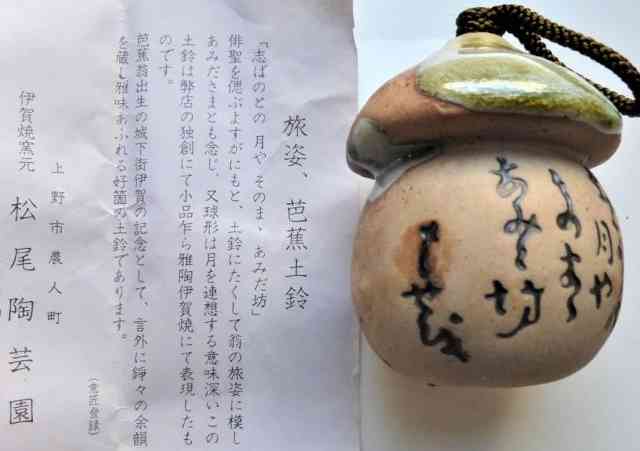 旅姿、芭蕉土鈴
「志ばのとの 月や そのまゝ あみだ坊」
俳聖を偲ぶよすがにもと、土鈴にたくして翁の旅姿に模し
あみださまとも念じ、又球形は月を連想する意味深いこの
土鈴は弊店の独創にて小品乍ら雅陶伊賀焼にて表現したも
のです。
芭蕉翁出生の城下街伊賀の記念として、言外に錚々の余韻
を蔵し雅味あふれる好箇の土鈴であります。
(意匠登録)
上野市農人町
伊賀焼窯元 松尾陶芸園
月や
そのまゝ
あみだ坊
はせを